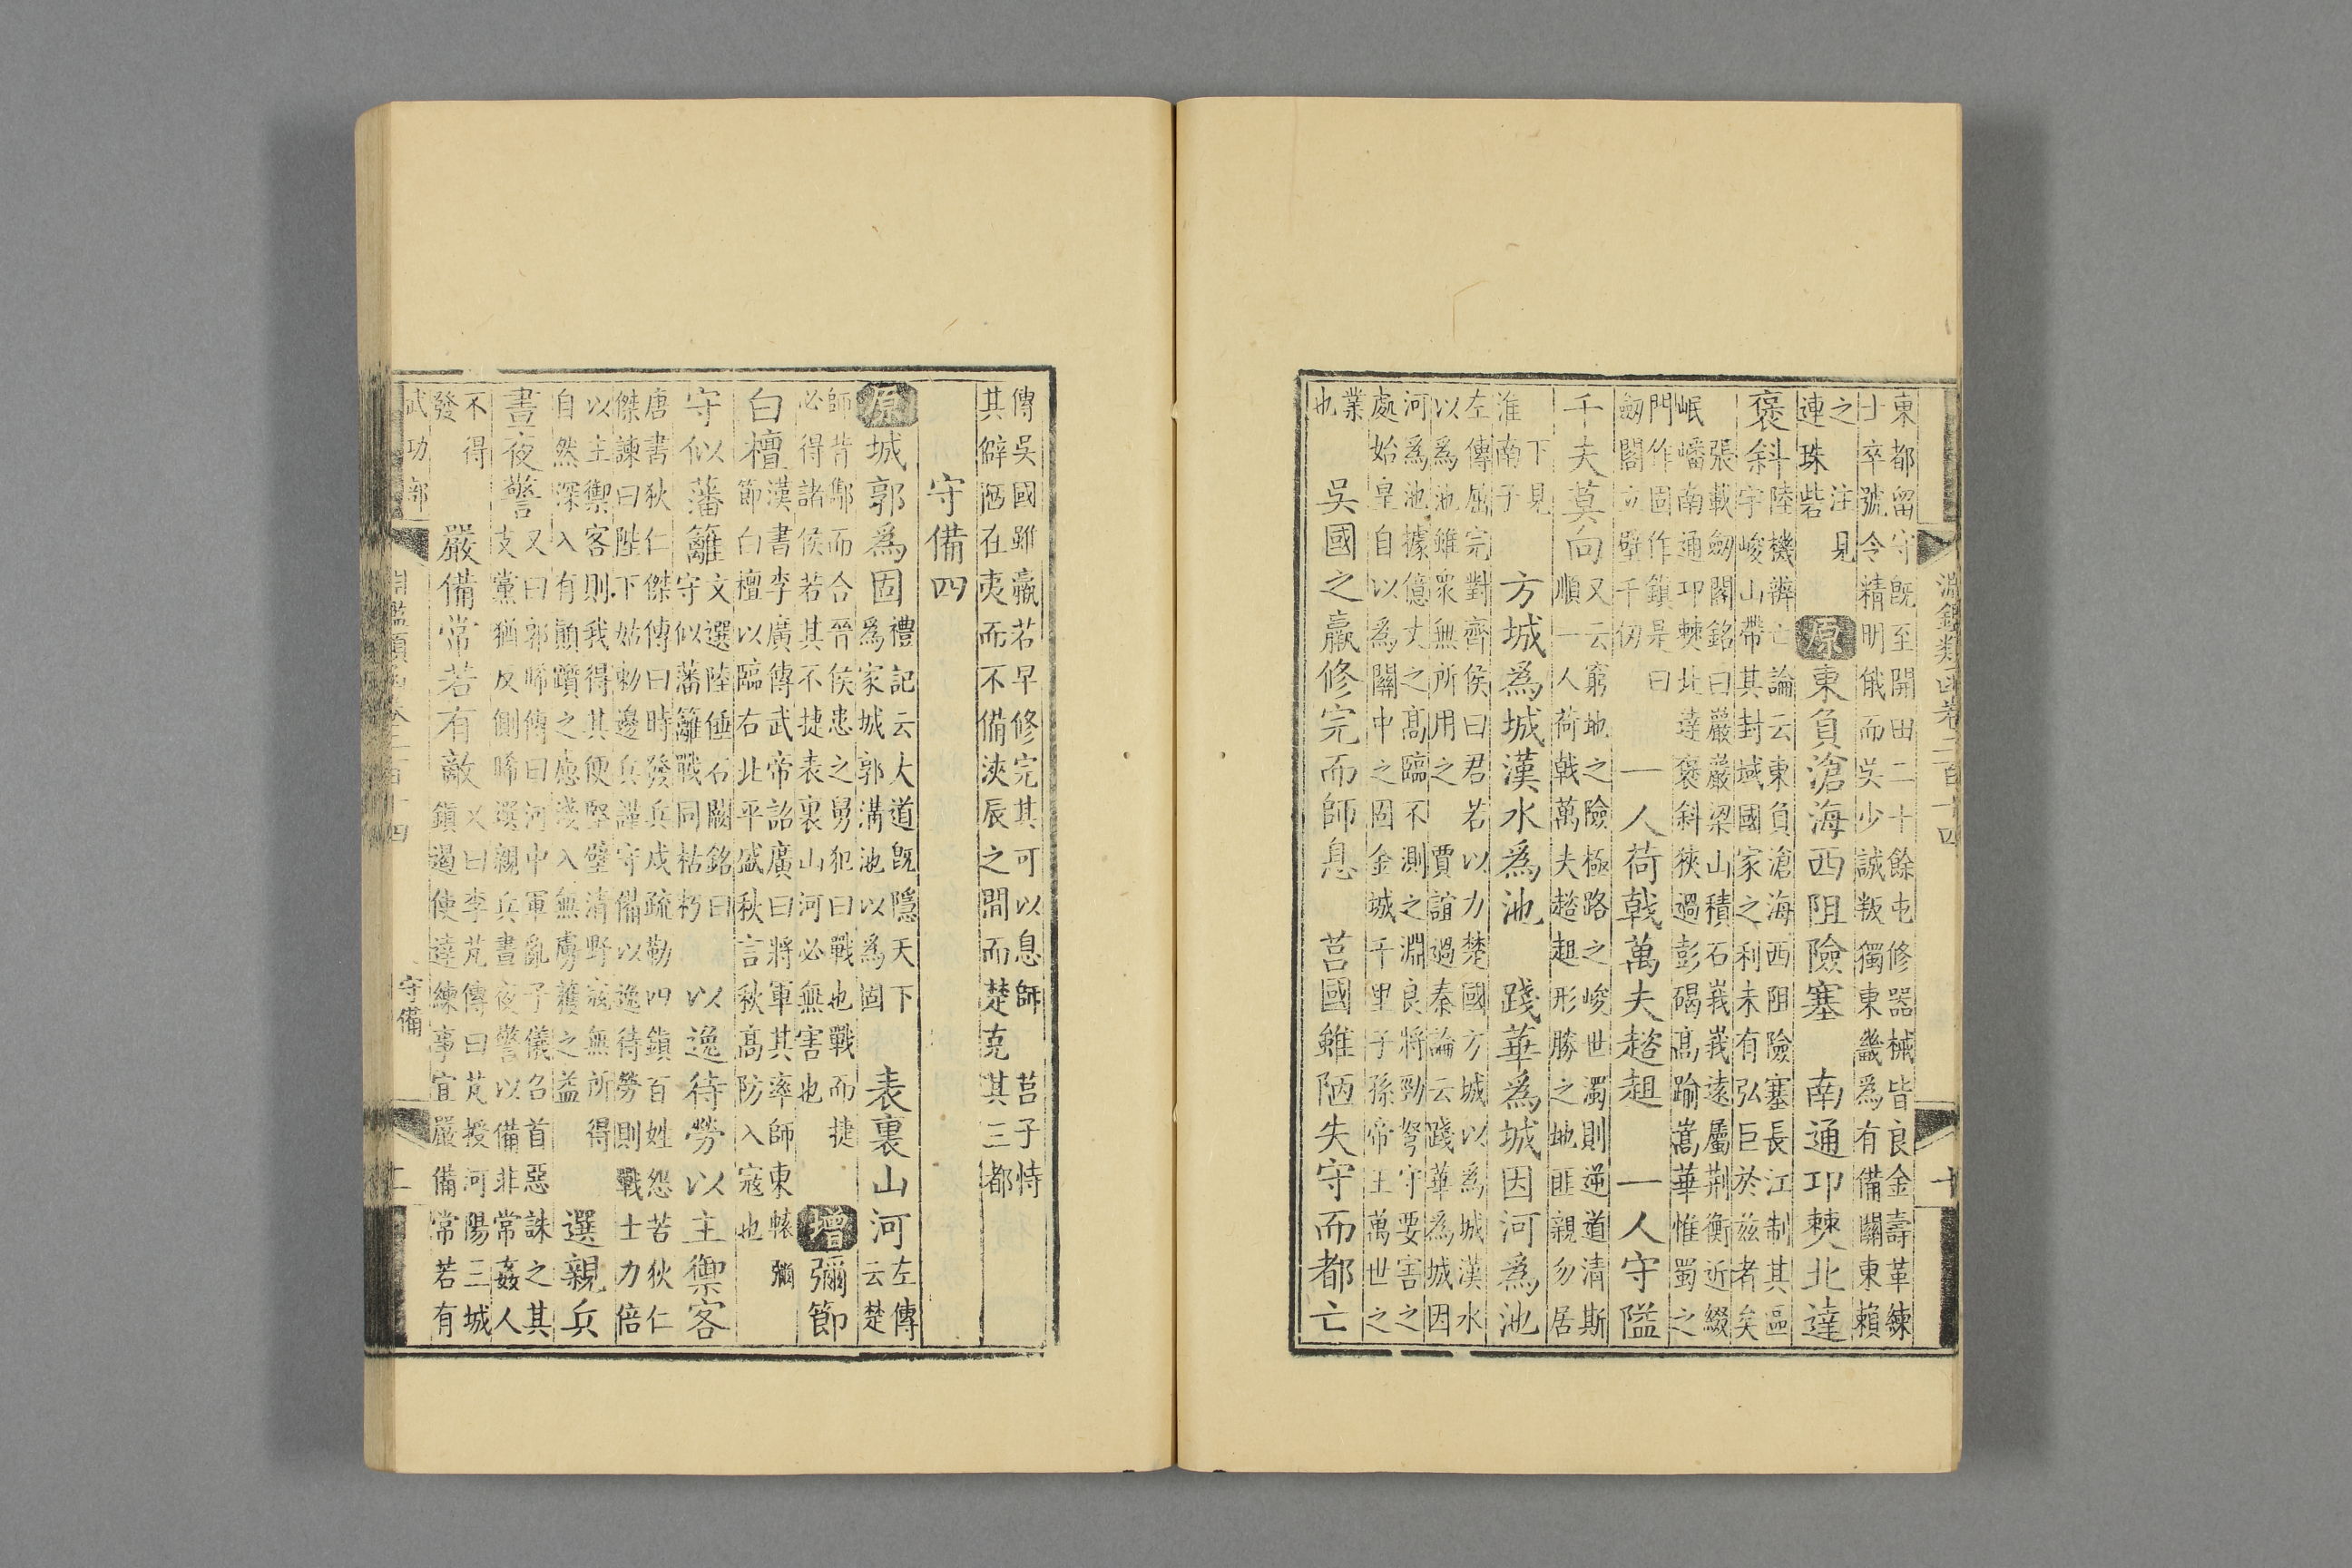 東都留守既至開田二十餘屯修器械皆良金壽革練
士卒號令精明俄而吳少誠叛獨東畿爲有備關東賴
之　注見
連珠砦
原東負滄海西阻險塞　南通邛僰北達
褒斜
陸機辨亡論云東負滄海西阻險塞長江制其區
宇峻山帶其封域國家之利未有弘巨於茲者矣
張載劔閣銘曰巖巖梁山積石峩峩遠屬荆衡近綴
岷嶓南通邛僰北達褒斜狹過彭碣高踰嵩華惟蜀之
門作固作鎮是曰
劔閣立壁千仞
一人荷戟萬夫趑趄　一人守隘
千夫莫向
又云窮地之險極路之峻世濁則逆道清斯
順一人荷戟萬夫趑趄形勝之地匪親勿居
下見
淮南子
方城爲城漢水爲池　踐華爲城因河爲池
左傳屈完對齊侯曰君若以力楚國方城以爲城漢水
以爲池雖衆無所用之　賈誼過秦論云踐華爲城因
河爲池據億丈之高臨不測之淵良將勁弩守要害之
處始皇自以爲關中之固金城千里子孫帝王萬世之
業
也
吳國之羸修完而師息　莒國雖陋失守而都亡
淵鑑類函卷二百十四
十
傳吳國雖羸若早修完其可以息師　莒子恃
其僻陋在夷而不備浹辰之間而楚克其三都
守備四
原城郭爲固
禮記云大道既隱天下
爲家城郭溝池以爲固
表裏山河
左傳
云楚
師背鄢而合晉侯患之舅犯曰戰也戰而捷
必得諸侯若其不捷表裏山河必無害也
增彌節
白檀
漢書李廣傳武帝詔廣曰將軍其率師東轅彌
節白檀以臨右北平盛秋言秋高防入寇也
守似藩籬
文選陸倕石闕銘曰
守似藩籬戰同枯朽
以逸待勞以主禦客
唐書狄仁傑傳曰時發兵戍疏勒四鎮百姓怨苦狄仁
傑諫曰陛下姑勅邊兵謹守備以逸待勞則戰士力倍
以主禦客則我得其便堅壁清野寇無所得
自然深入有顛躓之慮淺入無虜獲之益
選親兵
晝夜警
又曰郭晞傳曰河中軍亂子儀召首惡誅之其
支黨猶反側晞選親兵晝夜警以備非常姦人
不得
發
嚴備常若有敵
又曰李芃傳曰芃授河陽三城
鎮遏使達練事宜嚴備常若有
武功部
淵鑑類函卷二百十四
守備